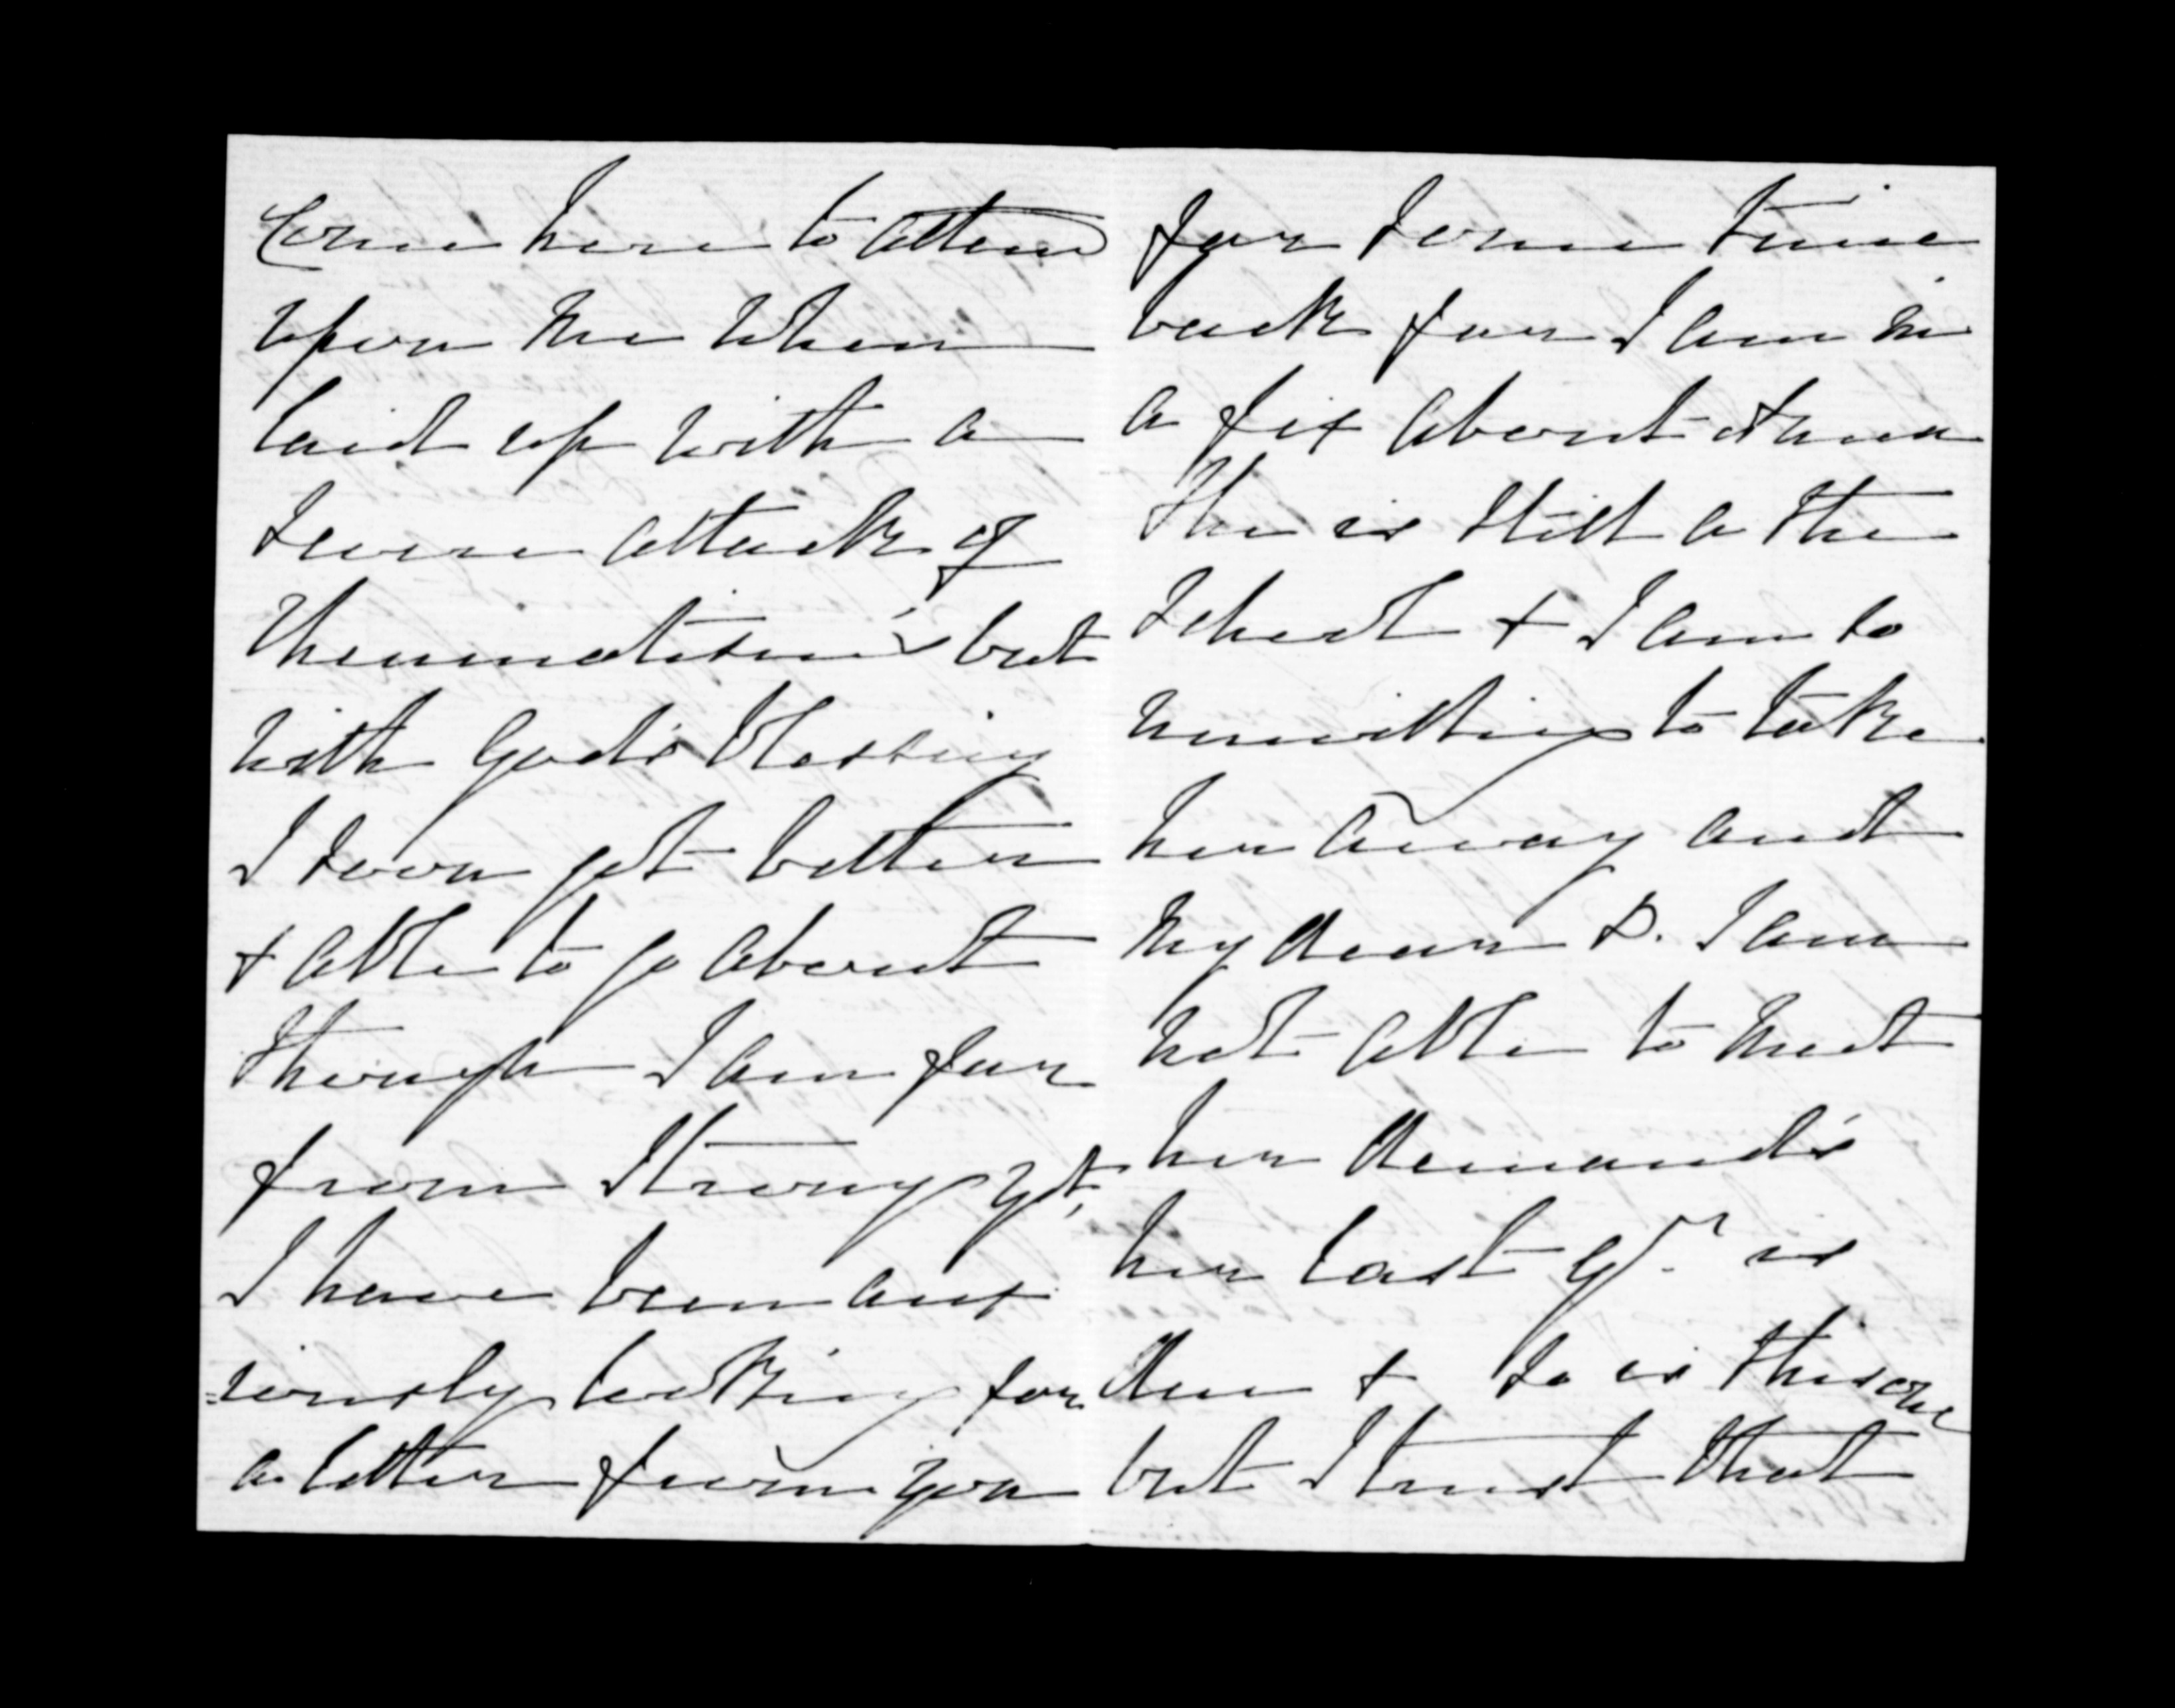 Come here to attend
upon me when
laid up with a
severe attack of
Rheumatism's but
with God's blessing
I soon got better
& able to go about
though I am far
from strong yet,
I have been anx
=iously looking for
a letter from you
for some time
back for I am in
a fix about
She is still a the
School & I am so
unwilling to take
her away and
my dear D. I am
not able to meet
her demand's
her last qr. is
due & so is this one
but I trust that